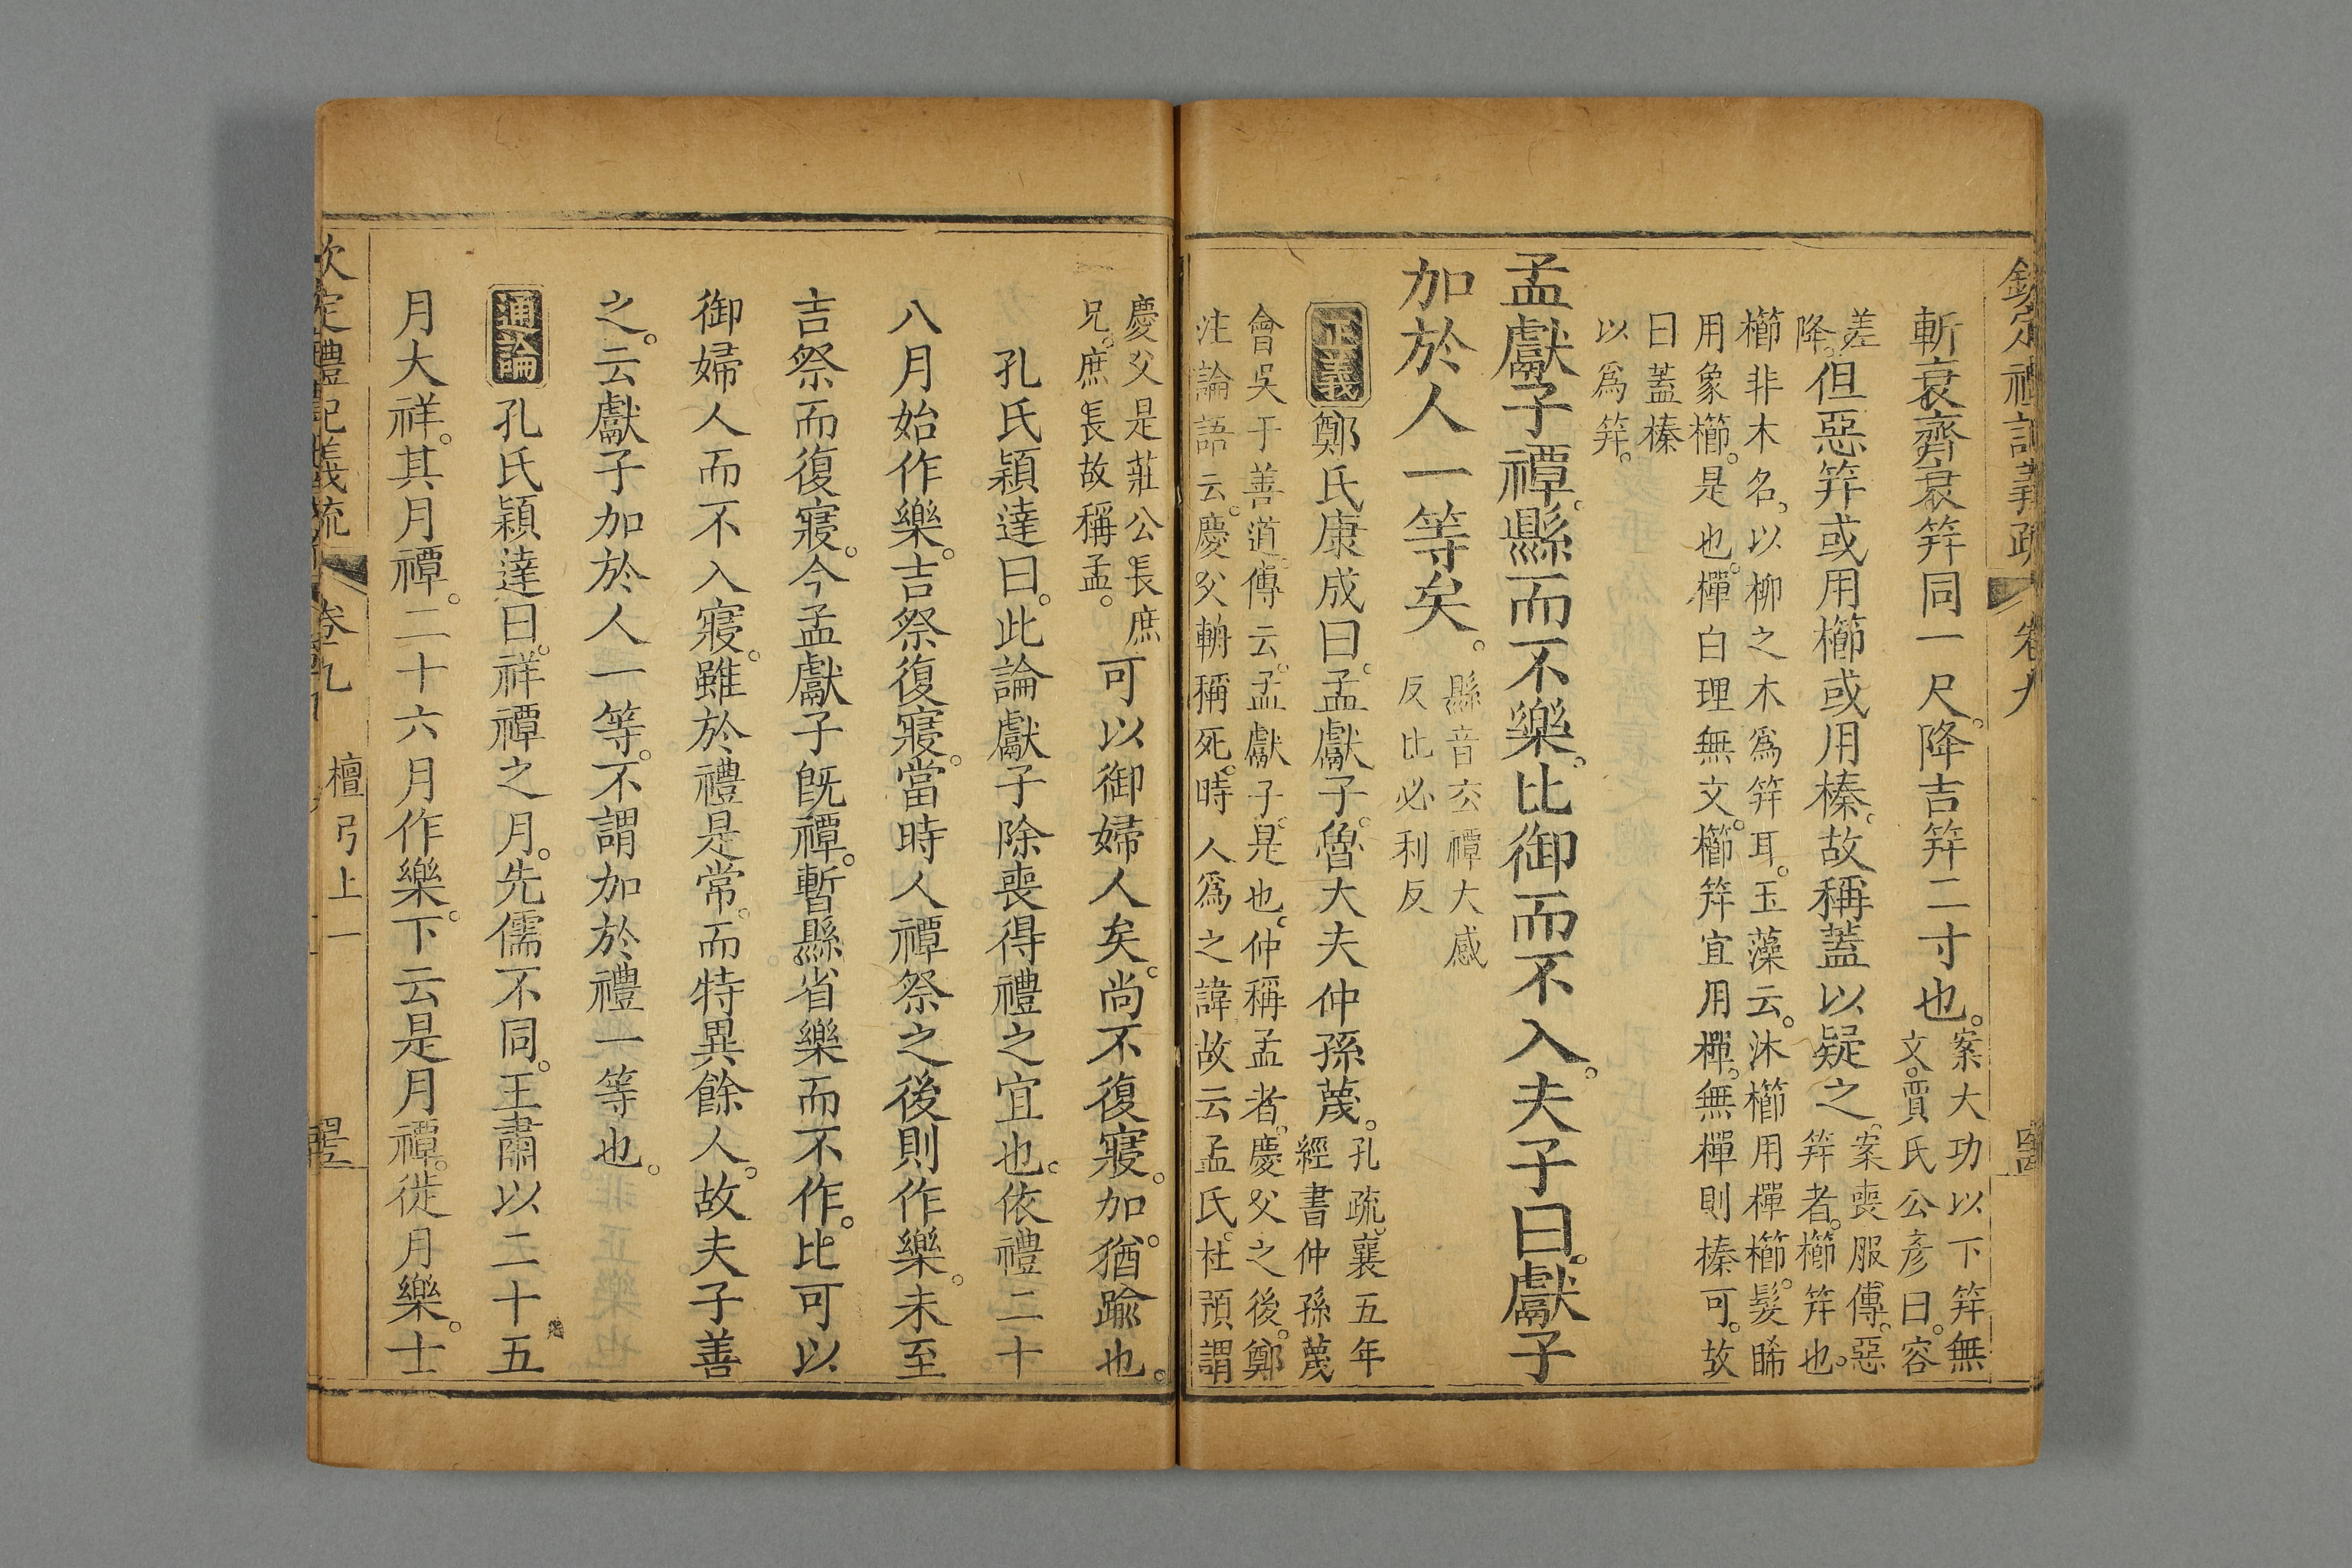 欽定禮記義疏 卷九
斬衰齊衰筓同一尺。降吉筓二寸也。案大功以下筓無
文。賈氏公彥曰。容
差
降。但惡筓或用櫛或用榛。故稱蓋以疑之。案喪服傳。惡
筓者。櫛筓也。
櫛非木名。以柳之木爲筓耳。玉藻云。沐櫛用樿櫛。髮晞
用象櫛。是也。樿白理無文。櫛筓宜用樿。無樿則榛可。故
曰蓋榛
以爲筓。
孟獻子禫。縣而不樂。比御而不入。夫子曰。獻子
加於人一等矣。縣音玄禫大感
反比必利反
正義 鄭氏康成曰。孟獻子。魯大夫仲孫蔑。孔疏。襄五年
經書仲孫蔑
會吳于善道。傳云。孟獻子。是也。仲稱孟者。慶父之後。鄭
注論語云。慶父輈稱死。時人爲之諱故云孟氏。杜預謂
慶父是莊公長庶
兄。庶長故稱孟。可以御婦人矣。尚不復寢。加。猶踰也。
孔氏穎達曰。此論獻子除喪得禮之宜也。依禮二十
八月始作樂。吉祭復寢。當時人禫祭之後則作樂。未至
吉祭而復寢。今孟獻子旣禫。暫縣省樂而不作。比可以
御婦人而不入寢。雖於禮是常。而特異餘人。故夫子善
之。云獻子加於人一等。不謂加於禮一等也。
通論 孔氏穎達曰。祥禫之月。先儒不同。王肅以二十五
月大祥。其月禫。二十六月作樂。下云是月禫。徙月樂。士
欽定禮記義疏 卷九 檀弓上一